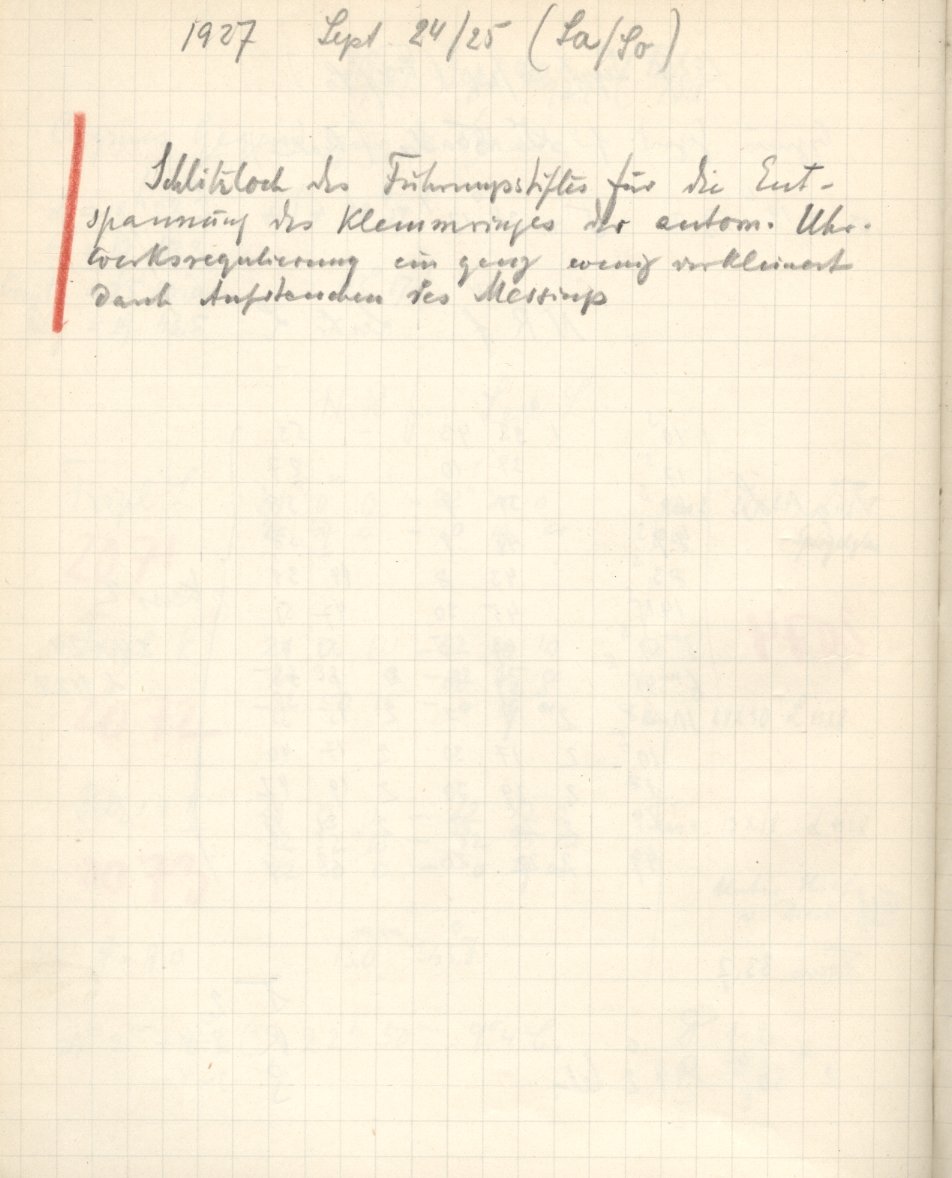 1927 Sept 24/25 (Sa/So)
Schlitzloch des Führungsstiftes für die Ent-
spannung des Klemmringes der autom. Uhr-
werksregulierung ein ganz wenig verkleinert
durch Aufstauchen des Messings